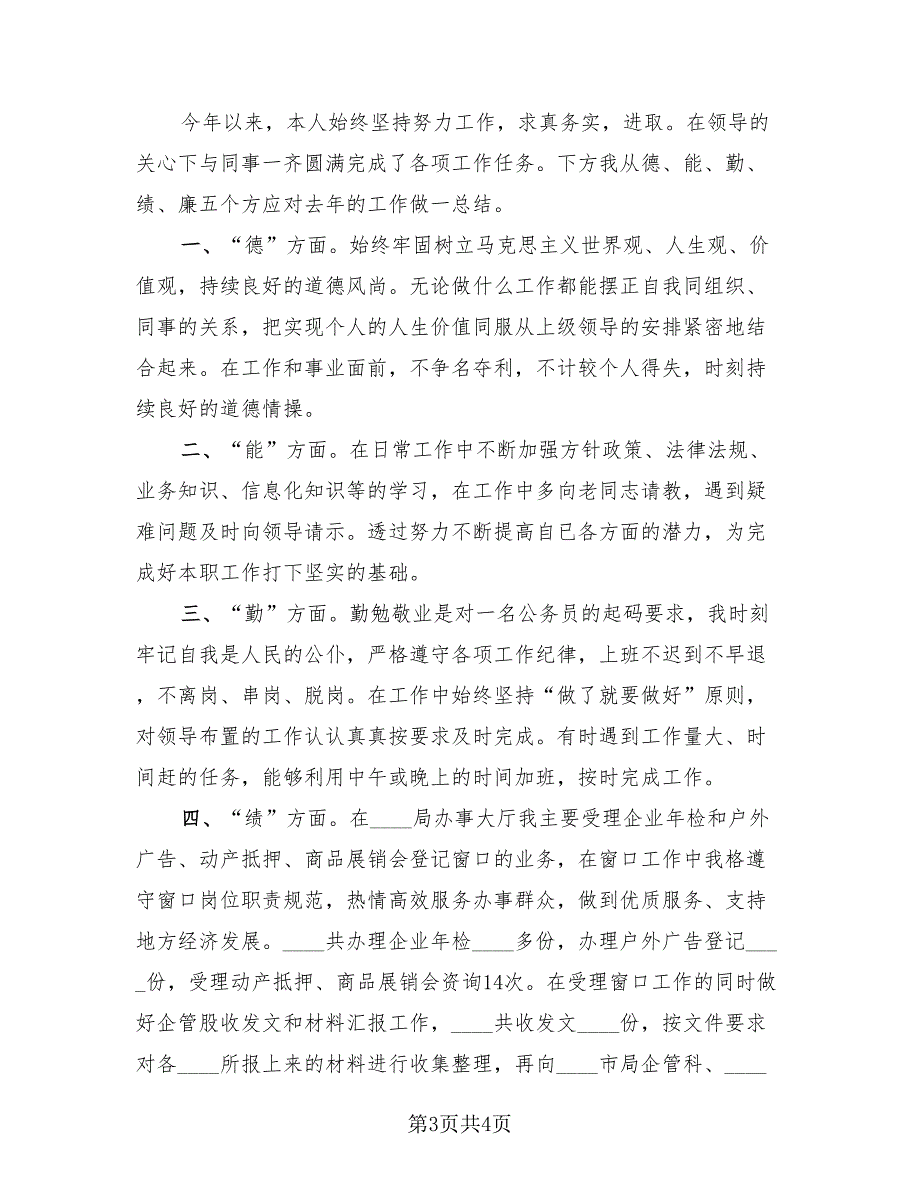 今年以来，本人始终坚持努力工作，求真务实，进取。在领导的
关心下与同事一齐圆满完成了各项工作任务。下方我从德、能、勤、
绩、廉五个方应对去年的工作做一总结。
一、“德”方面。始终牢固树立马克思主义世界观、人生观、价
值观，持续良好的道德风尚。无论做什么工作都能摆正自我同组织、
同事的关系，把实现个人的人生价值同服从上级领导的安排紧密地结
合起来。在工作和事业面前，不争名夺利，不计较个人得失，时刻持
续良好的道德情操。
二、“能”方面。在日常工作中不断加强方针政策、法律法规、
业务知识、信息化知识等的学习，在工作中多向老同志请教，遇到疑
难问题及时向领导请示。透过努力不断提高自已各方面的潜力，为完
成好本职工作打下坚实的基础。
三、“勤”方面。勤勉敬业是对一名公务员的起码要求，我时刻
牢记自我是人民的公仆，严格遵守各项工作纪律，上班不迟到不早退
，不离岗、串岗、脱岗。在工作中始终坚持“做了就要做好”原则，
对领导布置的工作认认真真按要求及时完成。有时遇到工作量大、时
间赶的任务，能够利用中午或晚上的时间加班，按时完成工作。
四、“绩”方面。在____局办事大厅我主要受理企业年检和户外
广告、动产抵押、商品展销会登记窗口的业务，在窗口工作中我格遵
守窗口岗位职责规范，热情高效服务办事群众，做到优质服务、支持
地方经济发展。____共办理企业年检____多份，办理户外广告登记___
_份，受理动产抵押、商品展销会资询14次。在受理窗口工作的同时做
好企管股收发文和材料汇报工作，____共收发文____份，按文件要求
对各____所报上来的材料进行收集整理，再向____市局企管科、____
第3页共4页